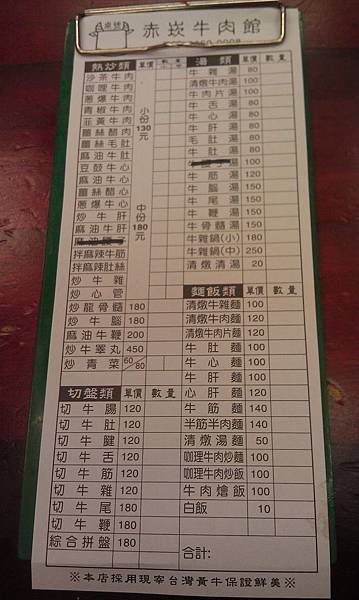 桌號
赤崁牛肉館
熱炒類 單價 數量
沙茶牛肉
咖哩牛肉
蔥爆牛肉
青椒牛肉
韭黃牛肉
薑絲醋肉
薑絲毛肚
麻油牛肚
豆鼓牛心
麻油牛心
薑絲醋心
蔥爆牛心
炒牛肝
麻油牛肝
拌麻辣牛筋
拌麻辣肚絲
炒牛雜
炒心管
小份130元
中份180元
炒龍骨髓 180
炒牛腦 180
麻油牛鞭 200
炒牛睪丸 450
炒青菜 60/80
切盤類 單價 數量
切牛腸 120
切牛肚 120
切牛腱 120
切牛舌 120
切牛筋 120
切牛雜 120
切牛尾 180
切牛鞭 180
綜合拼盤 180
湯類 單價 數量
牛雜湯 80
清燉牛肉湯 100
牛肉片湯 100
牛舌湯 80
牛心湯 80
牛肝湯 80
毛肚湯 80
牛肚湯 80
牛筋湯 120
牛腦湯 150
牛尾湯 150
牛鞭湯 150
牛骨髓湯 150
牛雜鍋(小) 180
牛雜鍋(中) 250
清燉清湯 20
麵飯類 單價 數量
清燉牛雜麵 100
清燉牛肉麵 120
清燉牛肉片麵 120
牛肚麵 100
牛心麵 100
牛肝麵 100
心肝麵 120
牛筋麵 140
半筋半肉麵 140
清燉湯麵 50
咖哩牛肉炒麵 100
咖哩牛肉炒飯 100
牛肉燴飯 100
白飯 10
合計:
※本店採用現宰台灣黃牛保證鮮美※